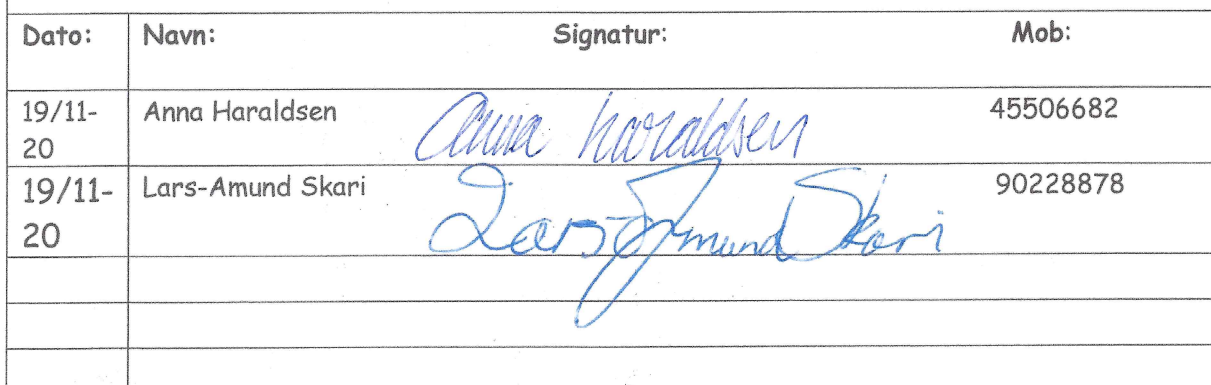 Dato: Navn: Signatur: Mob:
19/11- Anna Haraldsen Anna Haraldsen 45506682
20
19/11- Lars-Amund Skari Lars-Amund Skari 90228878
20